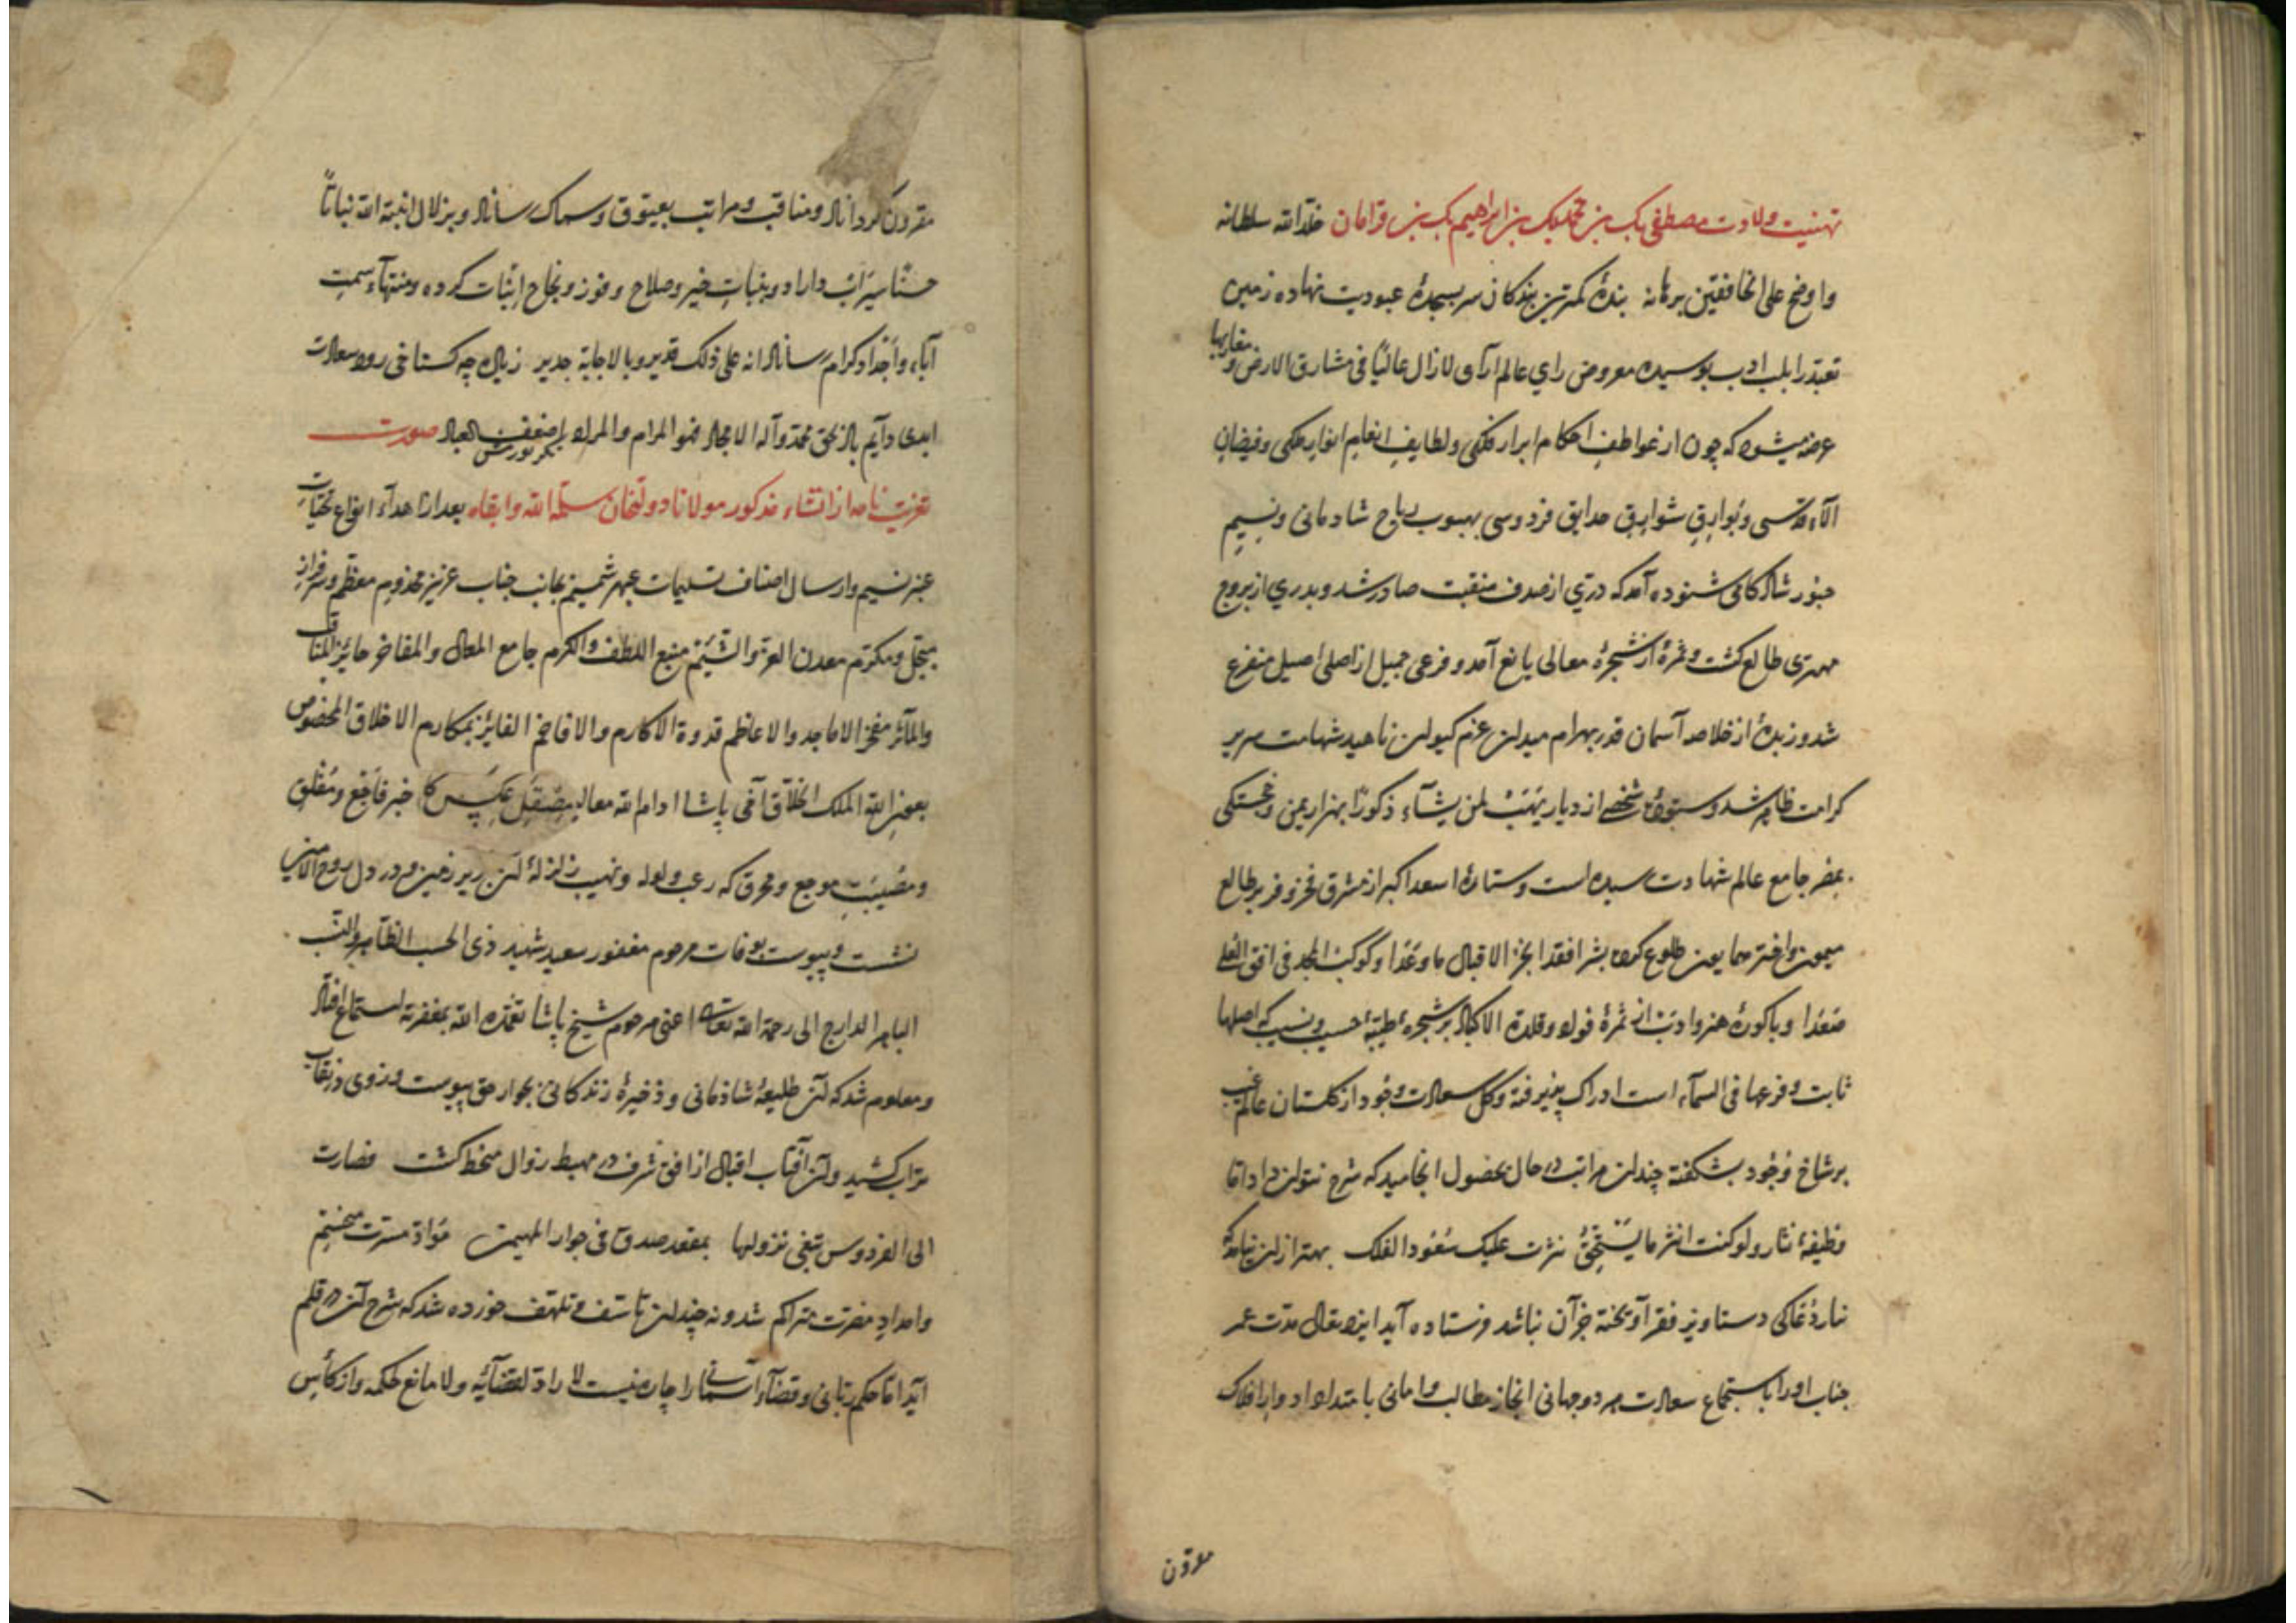 تهنیت ولادت مصطفی بک بن محمد بک بن ابراهیم بک بن قرامان خلد الله سلطانه
واوضح علی الخافقین برهانه بندهٔ کمترین بندکان سر بسجدهٔ عبودیت نهاده زمین
تعبد را بلب ادب بوسیده معروض رای عالم آرای لازال عالیًا فی مشارق الارض و مغاربها
عرضه میشود که چون از عواطف احکام ابرار فلکی ولطایف انعام انوار ملکی وفیضان
آلاء قدسی وبوارق شوارق حدایق فردوسی بهبوب ریاح شادمانی ونسیم
حبور شادکامی شنوده آمد که دری از صدف منقبت صادر شد وبدری از بروج
مهتری طالع کشت وثمرهٔ از شجرهٔ معالی یانع آمد وفرعی جمیل از اصلی اصیل متفرع
شد وزبدهٔ از خلاصه آسمان قدر بهرام میدان عزم کیوان ناهید شهامت سریر
کرامت ظاهر شد وستوده شخصی از دیار یهب لمن یشآء ذکورًا بهزار یمن وخجستکی
بمصر جامع عالم شهادت رسیده است وستارهٔ اسعد اکبر از مشرق فخر وفر بر طالع
میمون واختر همایون طلوع کرده بشر افقد انجز الاقبال ما وعدا وکوکب المجد فی افق العلی
صعدا وباکورهٔ هنر وادب از ثمرهٔ فواد وفلذة الاکباد بر شجرهٔ طیبهٔ حسیب ونسیب که اصلها
ثابت وفرعها فی السمآء است ادراک پذیرفته وکل سعادت وجود از کلستان عالم غیب
بر شاخ وجود بشکفته چندان مراتب در حال بحصول انجامید که شرح نتوان داد اما
وظیفهٔ نثار ولو کنت انثر ما یستحق نثرت علیک سعود الفلک بهتر از این نیامد که
نثار دعا کی دستاویز فقر آو تحفه جز آن نباشد فرستاده آید ایزد تعالی مدت عمر
جناب او را باستجماع سعادت هر دو جهانی انجاز مطالب وامانی بامتداد ادوار افلاک
مقرون
مقرون کرداناد ومناقب ومراتب بعیوق وسماک رساناد وبزلال انبته الله نباتًا
حسنًا سیراب داراد وبنیات خیر وصلاح وفوز ونجاح اثبات کرده ومنتهآء سمت
آباء واجداد کرام رساناد انه علی ذلک قدیر وبالاجابة جدیر زیاده چه کستاخی رود سعادت
ابدی دایم باد بحق محمد وآله الامجاد نحو المرام والمراد اضعف العباد صورت
تعزیت نامه از انشاء مذکور مولانا دولتخان سلمه الله وابقاه بعد از اهداء انواع تحیات
عنبر نسیم وارسال اصناف تسلیمات عبهر شمیم بجانب جناب عزیز مخدوم معظم وسرفراز
مبجل ومکرم معدن العز والشیم منبع اللطف والکرم جامع المعالی والمفاخر حائز المناقب
والمآثر مفخر الاماجد والاعاظم قدوة الاکارم والافاخم الفایز بمکارم الاخلاق المخصوص
بعون الله الملک الخلاق آفی پاشا ادام الله معالیه خبر فاجع ومقلق
ومصیبت موجع ومحرق که رعب ولوله ونهیب زلزلهٔ آن زیر زمین ودر دل روح الامین
نشست وپیوست بوفات مرحوم مغفور سعید شهید ذی الحسب الظاهر والنسب
الباهر الدارج الی رحمة الله تعالی اعنی مرحوم شیخ پاشا تغمده الله بمغفرته استماع افتاد
ومعلوم شد که آن طلیعهٔ شادمانی وذخیرهٔ زندکانی بجوار حق پیوست وروی در نقاب
تراب کشید وآن آفتاب اقبال از افق شرف در مهبط زوال منحط کشت فصارت
الی الفردوس تبغی نزولها بمقعد صدق فی جوار المهیمن مواد مسرت منحسم
وامداد مضرت متراکم شد ونه چندان تأسف وتلهف خورده شد که شرح آن در قلم
آید اما حکم ربانی وقضآء آسمانی را چاره نیست لا راد لقضآئه ولا مانع لحکمه واز کأس